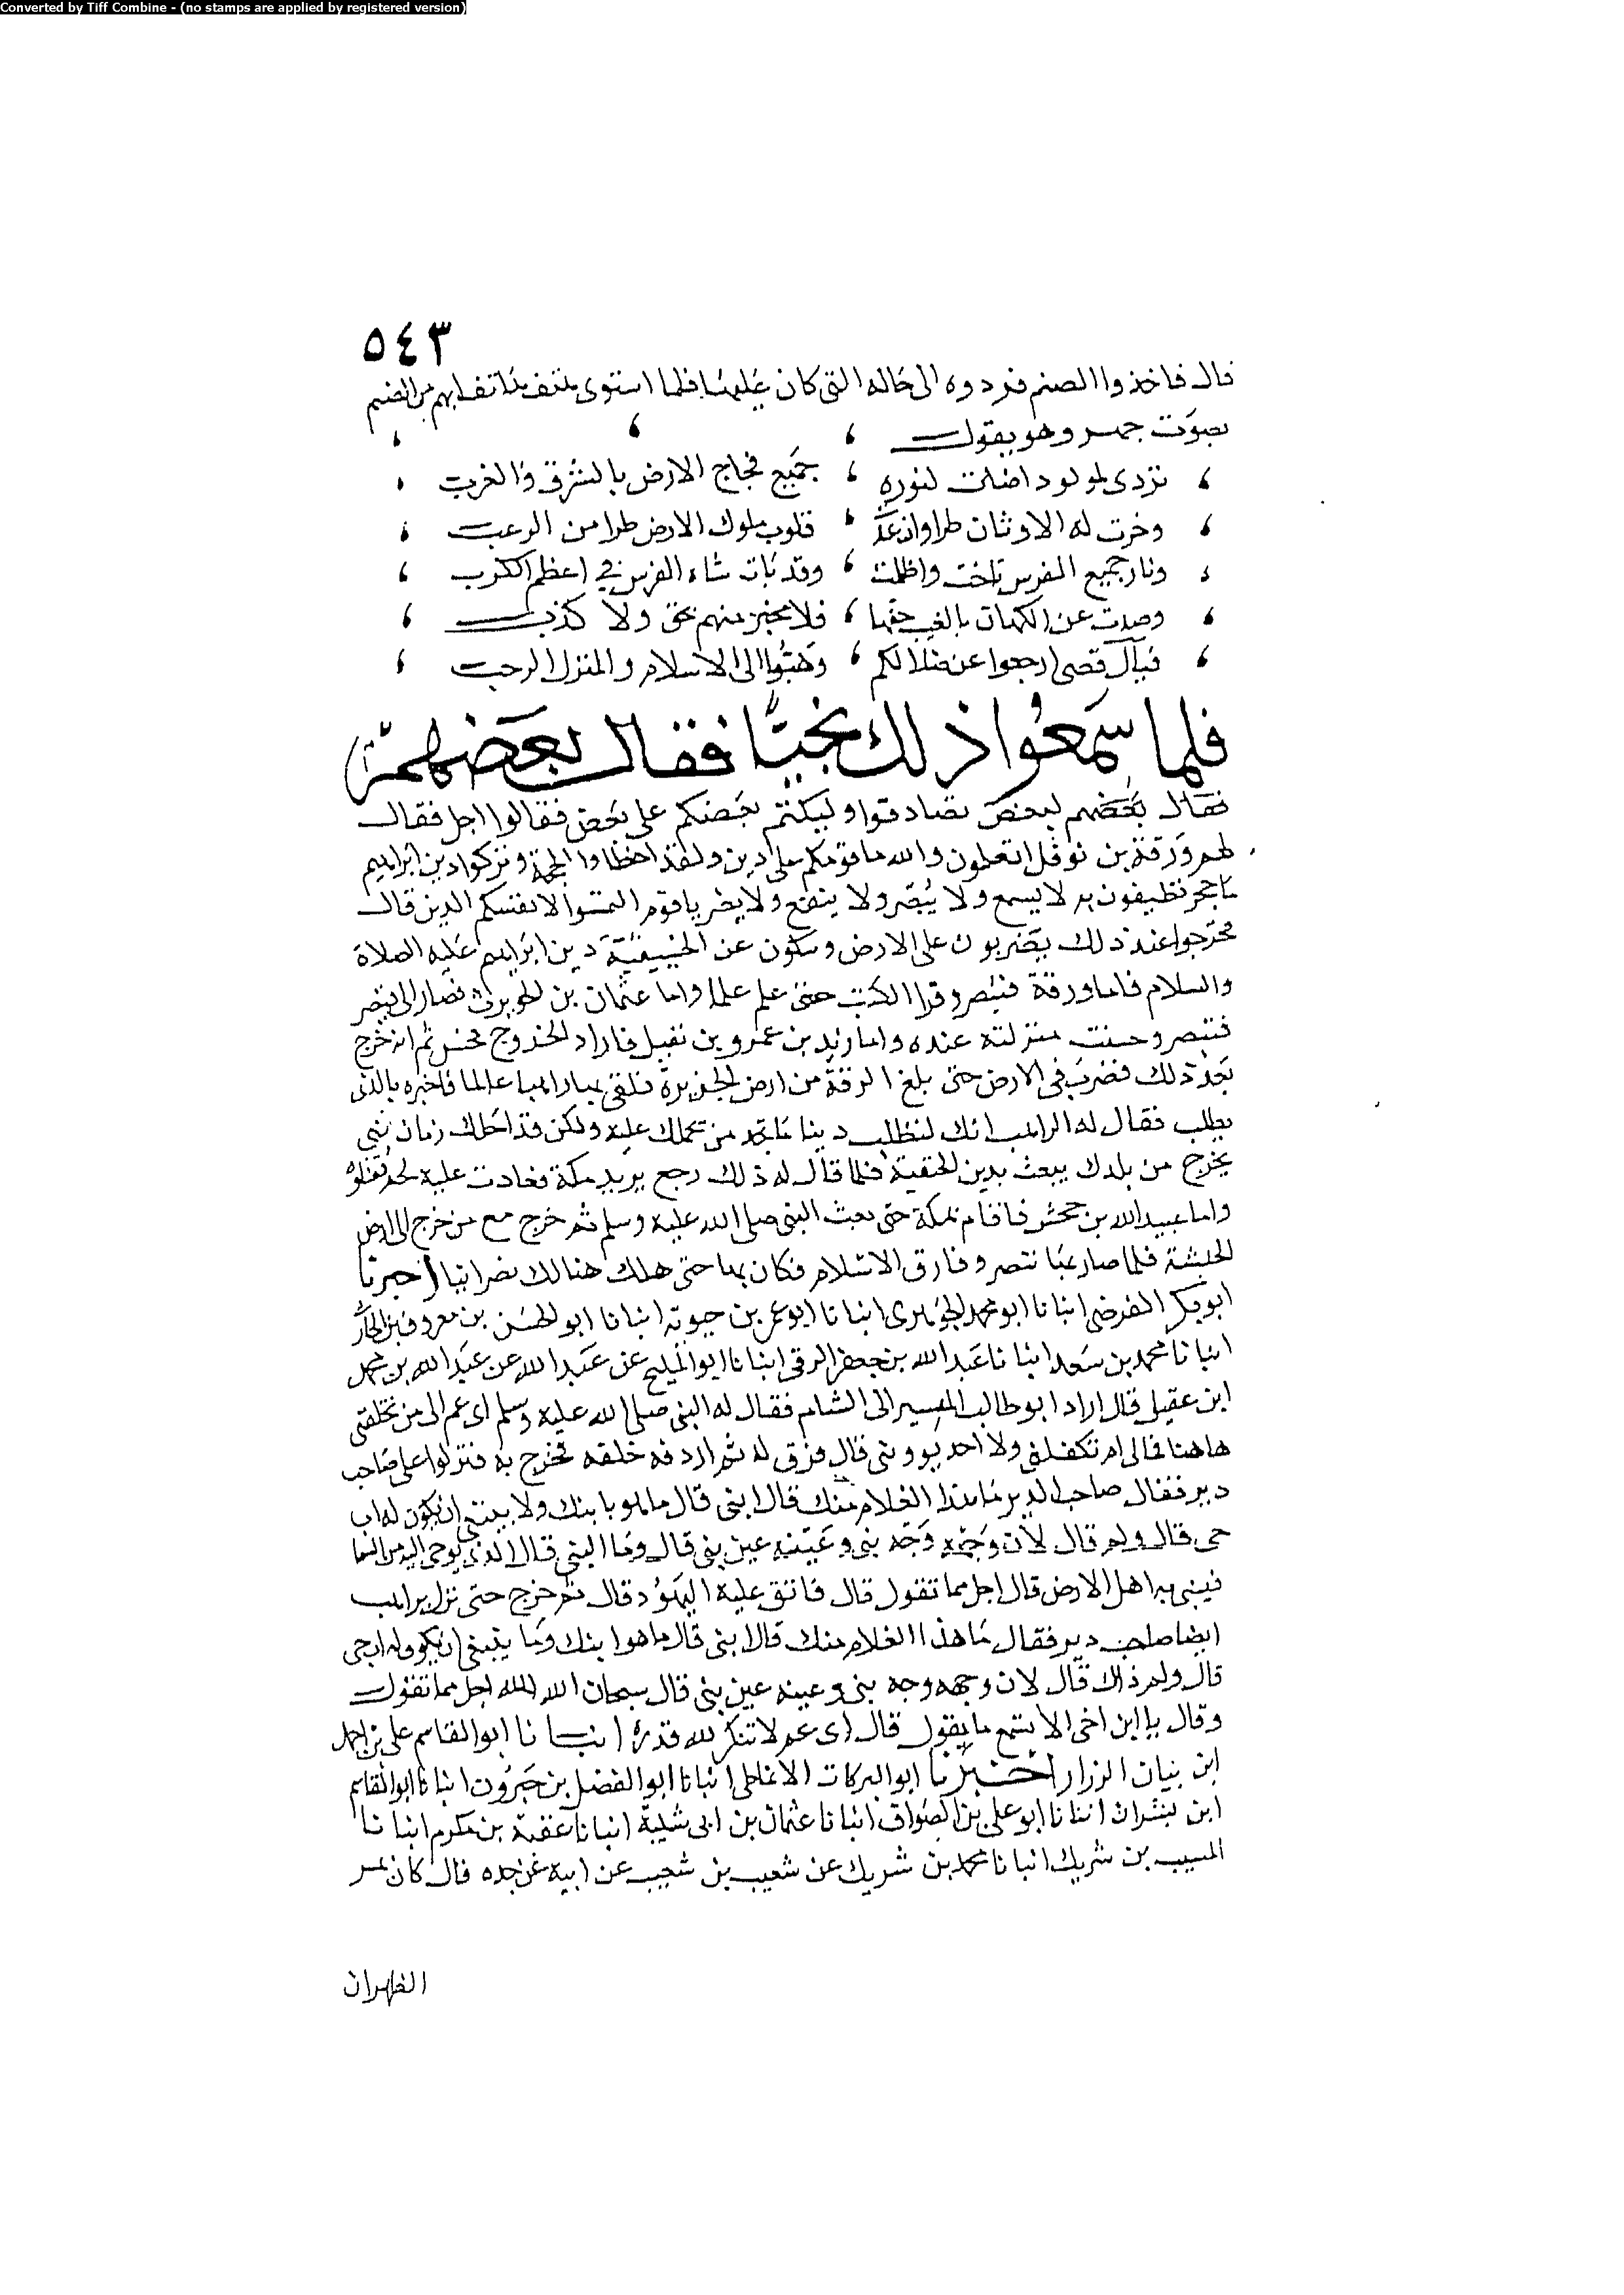 Converted by Tiff Combine - (no stamps are applied by registered version)
٥٤٣
قال فاخذوا الصنم فردوه الى حاله التى كان عليها فلما استوى هتف هاتف بهم من الصنم
بصوت جهير وهو يقول
تردى لمولود اضات لنوره ، جميع فجاج الارض بالشرق والغرب
وخرت له الاوثان طرا وارعدت ، قلوب ملوك الارض طرا من الرعب
ونار جميع الفرس باخت واظلمت ، وقد بات شاه الفرس في اعظم الكرب
وصدت عن الكهان بالغيب جنها ، فلا مخبر منهم بحق ولا كذب
فيال قصى ارجعوا عن ضلالكم ، وهبوا الى الاسلام والمنزل الرحب
فلما سمعوا ذلك نجيا فقال بعضهم
فقال بعضهم لبعض تصادقوا وليكتم بعضكم على بعض فقالوا اجل فقال
لهم ورقة بن نوفل اتعلمون والله ما قومكم على دين ولقد اخطاوا الحجة وتركوا دين ابراهيم
ما حجر تطيفون به لا يسمع ولا يبصر ولا ينفع ولا يضر يا قوم التمسوا لانفسكم الدين قال
فخرجوا عند ذلك يضربون على الارض وسلون عن الحنيفية دين ابراهيم عليه الصلاة
والسلام فاما ورقة فتنصر وقرا الكتب حتى علم علما واما عثمان بن الحويرث فصار الى قيصر
فتنصر وحسنت منزلته عنده واما زيد بن عمرو بن نفيل فاراد الخروج فحبس ثم انه خرج
بعد ذلك فضرب في الارض حتى بلغ الرقة من ارض الجزيرة فلقى بها راهبا عالما فاخبره بالذى
يطلب فقال له الراهب انك لتطلب دينا ما تجد من يحملك عليه ولكن قد اظلك زمان نبى
يخرج من بلدك يبعث بدين الحنيفية فلما قال له ذلك رجع يريد مكة فغارت عليه لخم فقتلوه
واما عبيد الله بن جحش فاقام بمكة حتى بعث النبى صلى الله عليه وسلم ثم خرج مع من خرج الى ارض
الحبشة فلما صار بها تنصر وفارق الاسلام فكان بها حتى هلك هنالك نصرانيا اخبرنا
ابو بكر الفرضى انبانا ابو محمد الجوهرى انبانا ابو عمر بن حيوته انبانا ابو الحسن بن معروف بن
انبانا محمد بن سعد انبانا عبد الله بن جعفر الرقى انبانا ابو المليح عن عبد الله عن عبد الله بن محمد
ابن عقيل قال اراد ابو طالب المسير الى الشام فقال له النبى صلى الله عليه وسلم اى عم الى من تخلفنى
هاهنا فمالى ام تكفلنى ولا احد يوويني قال فرق له ثم اردفه خلفه فخرج به فنزلوا على صاحب
دير فقال صاحب الدير ما هذا الغلام منك قال ابنى قال ما هو بابنك ولا ينبغى ان يكون له اب
حى قال ولم قال لان وجهه وجه نبى وعينه عين نبى قال وما النبى قال الذى يوحى اليه من السما
فينبى به اهل الارض قال اجل مما تقول قال فاتق عليه اليهود قال ثم خرج حتى نزل براهب
ايضا صاحب دير فقال ما هذا الغلام منك قال ابنى قال ما هوا بنك وما ينبغى ان يكون له اب حى
قال ولم ذاك قال لان وجهه وجه نبى وعينه عين نبى قال سبحان الله الله اجل مما تقول
وقال يا ابن اخى الا تسمع ما يقول قال اى عم لا تنكر لله قدرة انبانا ابو القاسم على بن احمد
ابن بيان الرزاز اخبرنا ابو البركات الانماطى انبانا ابو الفضل بن خيرون انبانا ابو القاسم
ابن بشران انبانا ابو على بن الصواف انبانا عثمان بن ابى شيبة انبانا عقبة بن مكرم انبانا
المسيب بن شريك انبانا محمد بن شريك عن شعيب بن شعيب عن ابيه عن جده قال كان بمر
الظهران